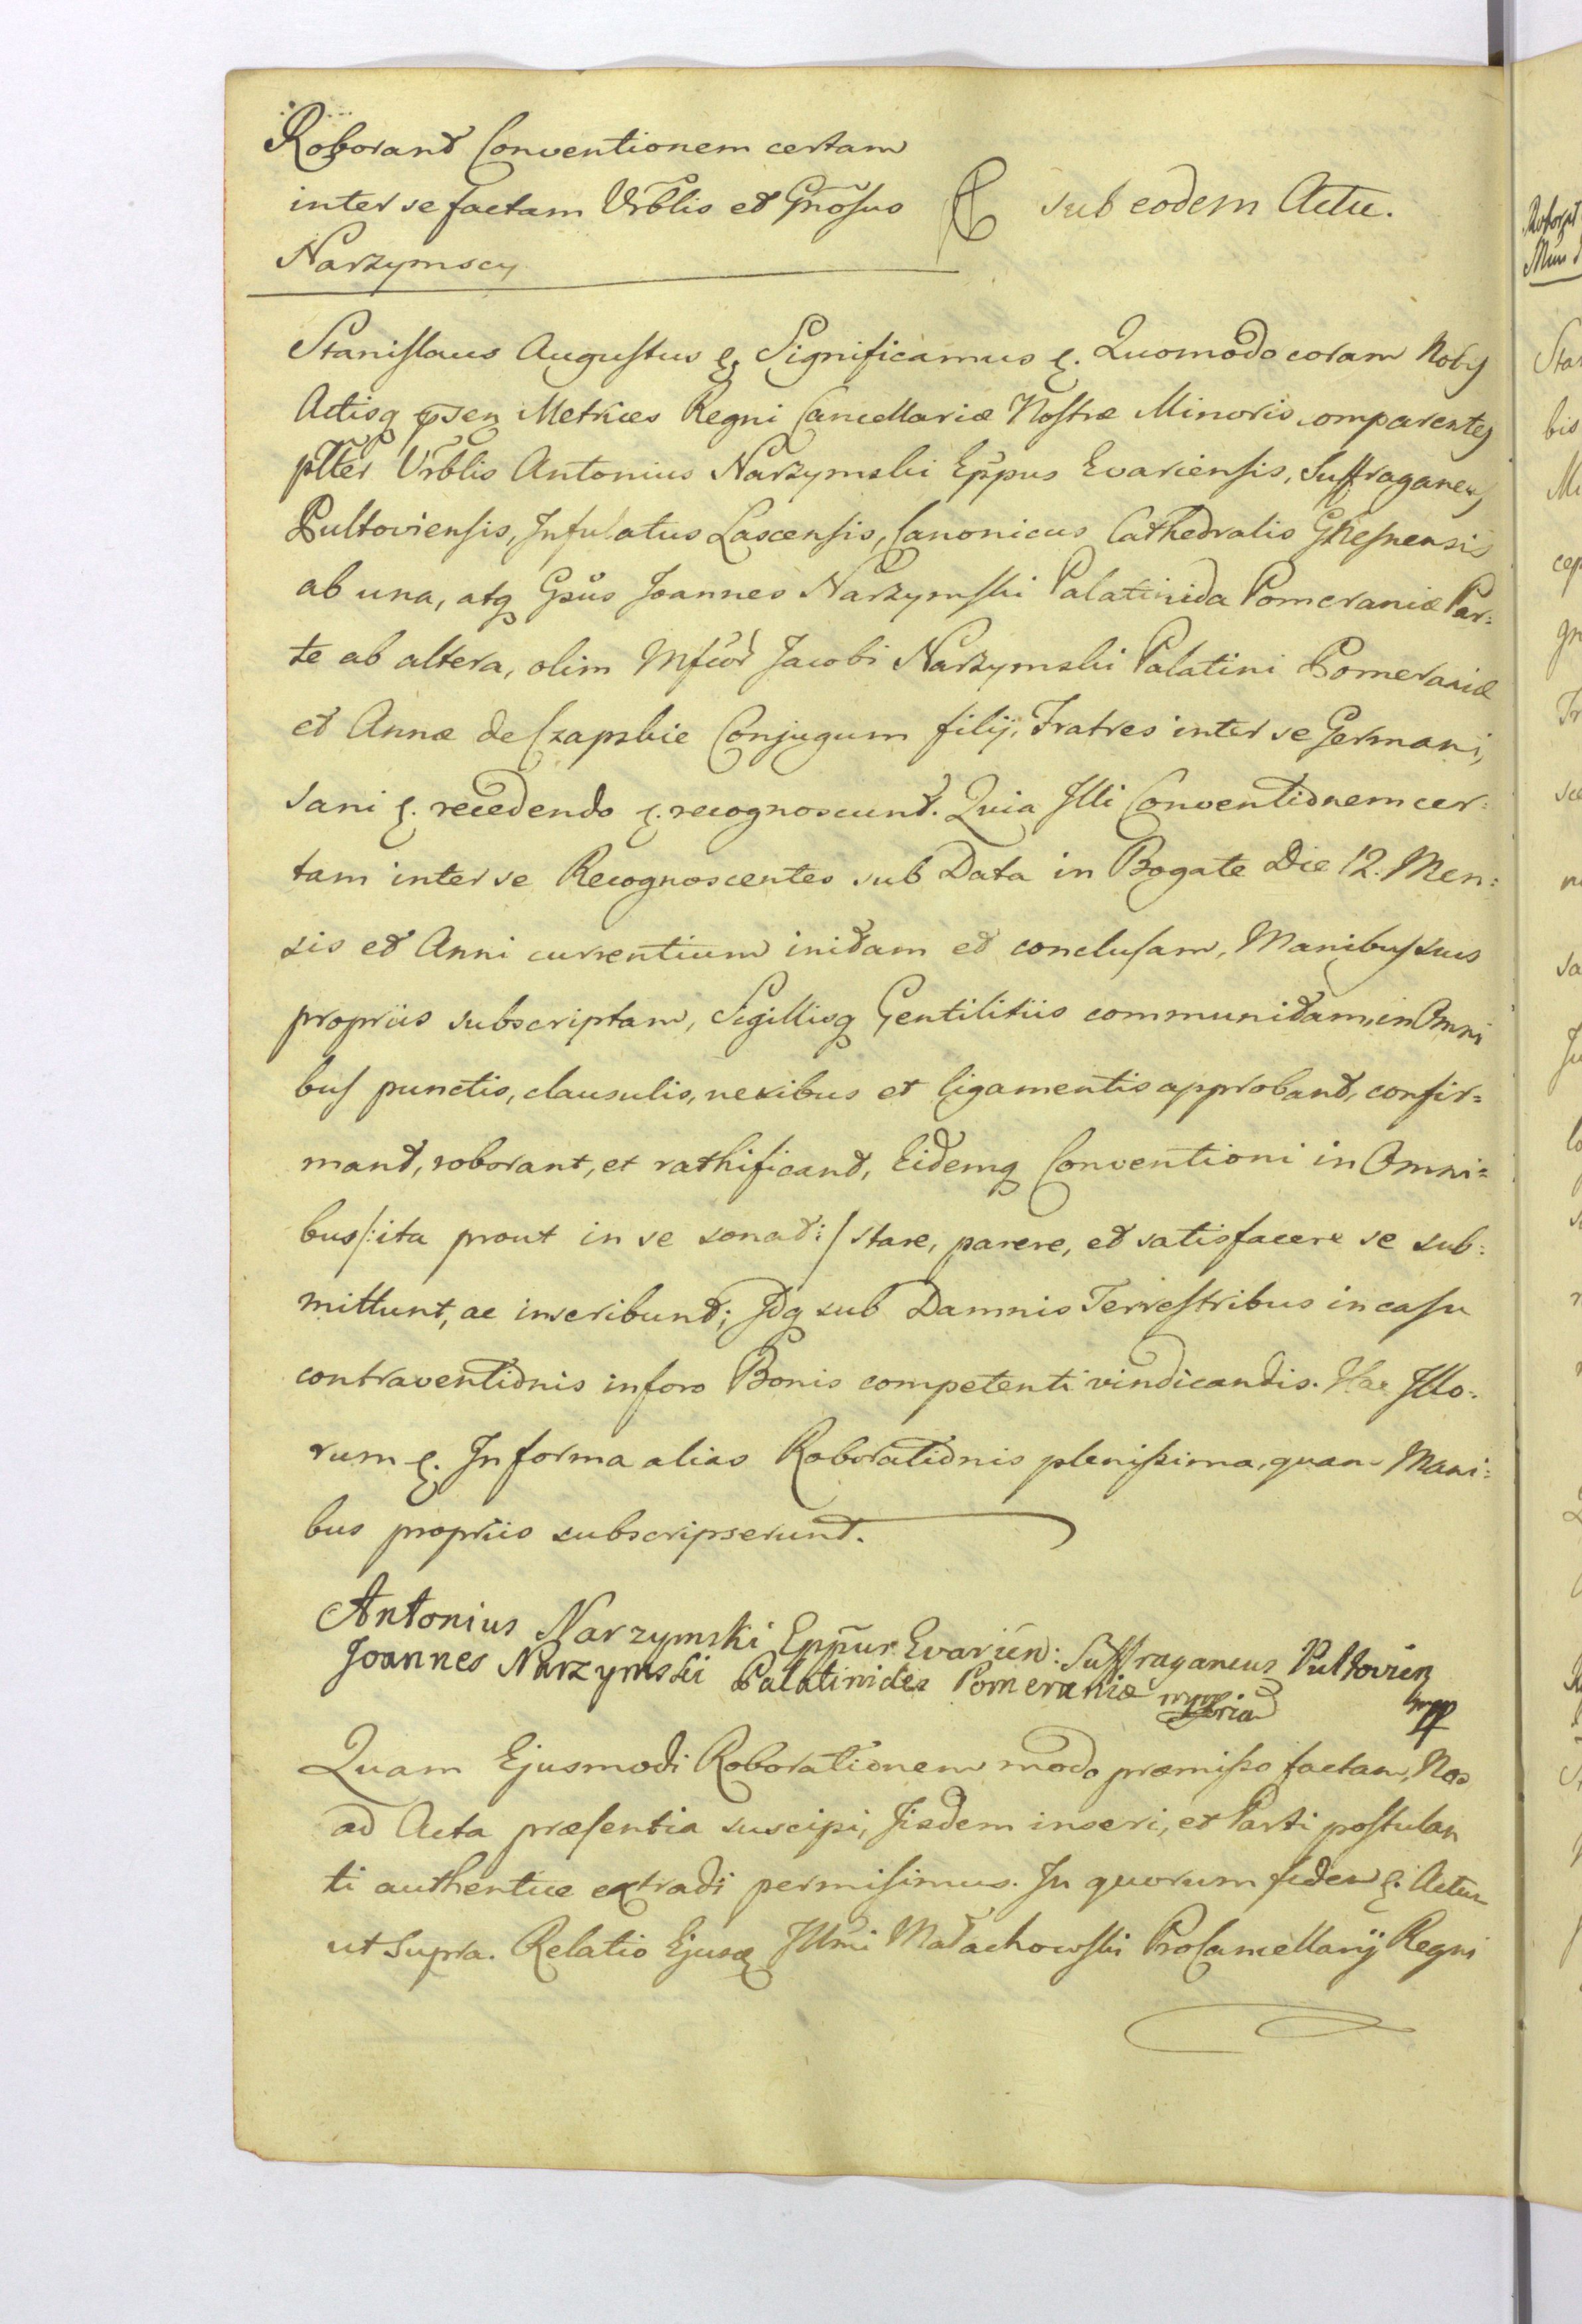 Roborant Conventionem certam
inter se factam Urblis et Gnosus
Narzymscy
sub eodem Actu.
Stanislaus Augustus &. Significamus &. Quomodo coram Nobis
Actisq psen Metrices Regni Cancellariæ Nostræ Minoris comparentes
plter Urblis Antonius Narzymski Eppus Evariensis, Suffraganeus
Pultoviensis, Infulatus Lascensis, Canonicus Cathedralis Gnesnensis
ab una, atq Gsus Joannes Narzymski Palatinida Pomeraniæ Par:
te ab altera, olim Mfcor Jacobi Narzymski Palatini Pomeraniæ
et Annæ de Czapskie Conjugum filij, Fratres inter se Germani,
sani &. recedendo &. recognoscunt. Quia Illi Conventionem cer:
tam inter se Recognoscentes sub Data in Bogate Die 12. Men:
sis et Anni currentium initam et conclusam, Manibus suis
propriis subscriptam, Sigillisq Gentilitiis communitam, in Omni
bus punctis, clausulis, nexibus et ligamentis approbant, confir=
mant, roborant, et rathificant, Eidemq Conventioni in Omni=
bus /: ita prout in se sonat :/ stare, parere, et satisfacere se sub:
mittunt, ac inscribunt; Idq sub Damnis Terrestribus in casu
contraventionis in foro Bonis competenti vindicandis. Hac Illo:
rum &. In forma alias Roborationis plenissima, quam Mani:
bus propriis subscripserunt.
Antonius Narzymski Eppus Evarien: Suffraganeus Pultovien
mpp
Joannes Narzymski Palatinides Pomeraniæ mppria
Quam Ejusmodi Roborationem modo præmisso factam, Nos
ad Acta præsentia suscipi, Iisdem inseri, et Parti postulan
ti authentice extradi permisimus. In quorum fidem &. Actum
ut supra. Relatio Ejusq Illmi Małachowski ProCancellarij Regni